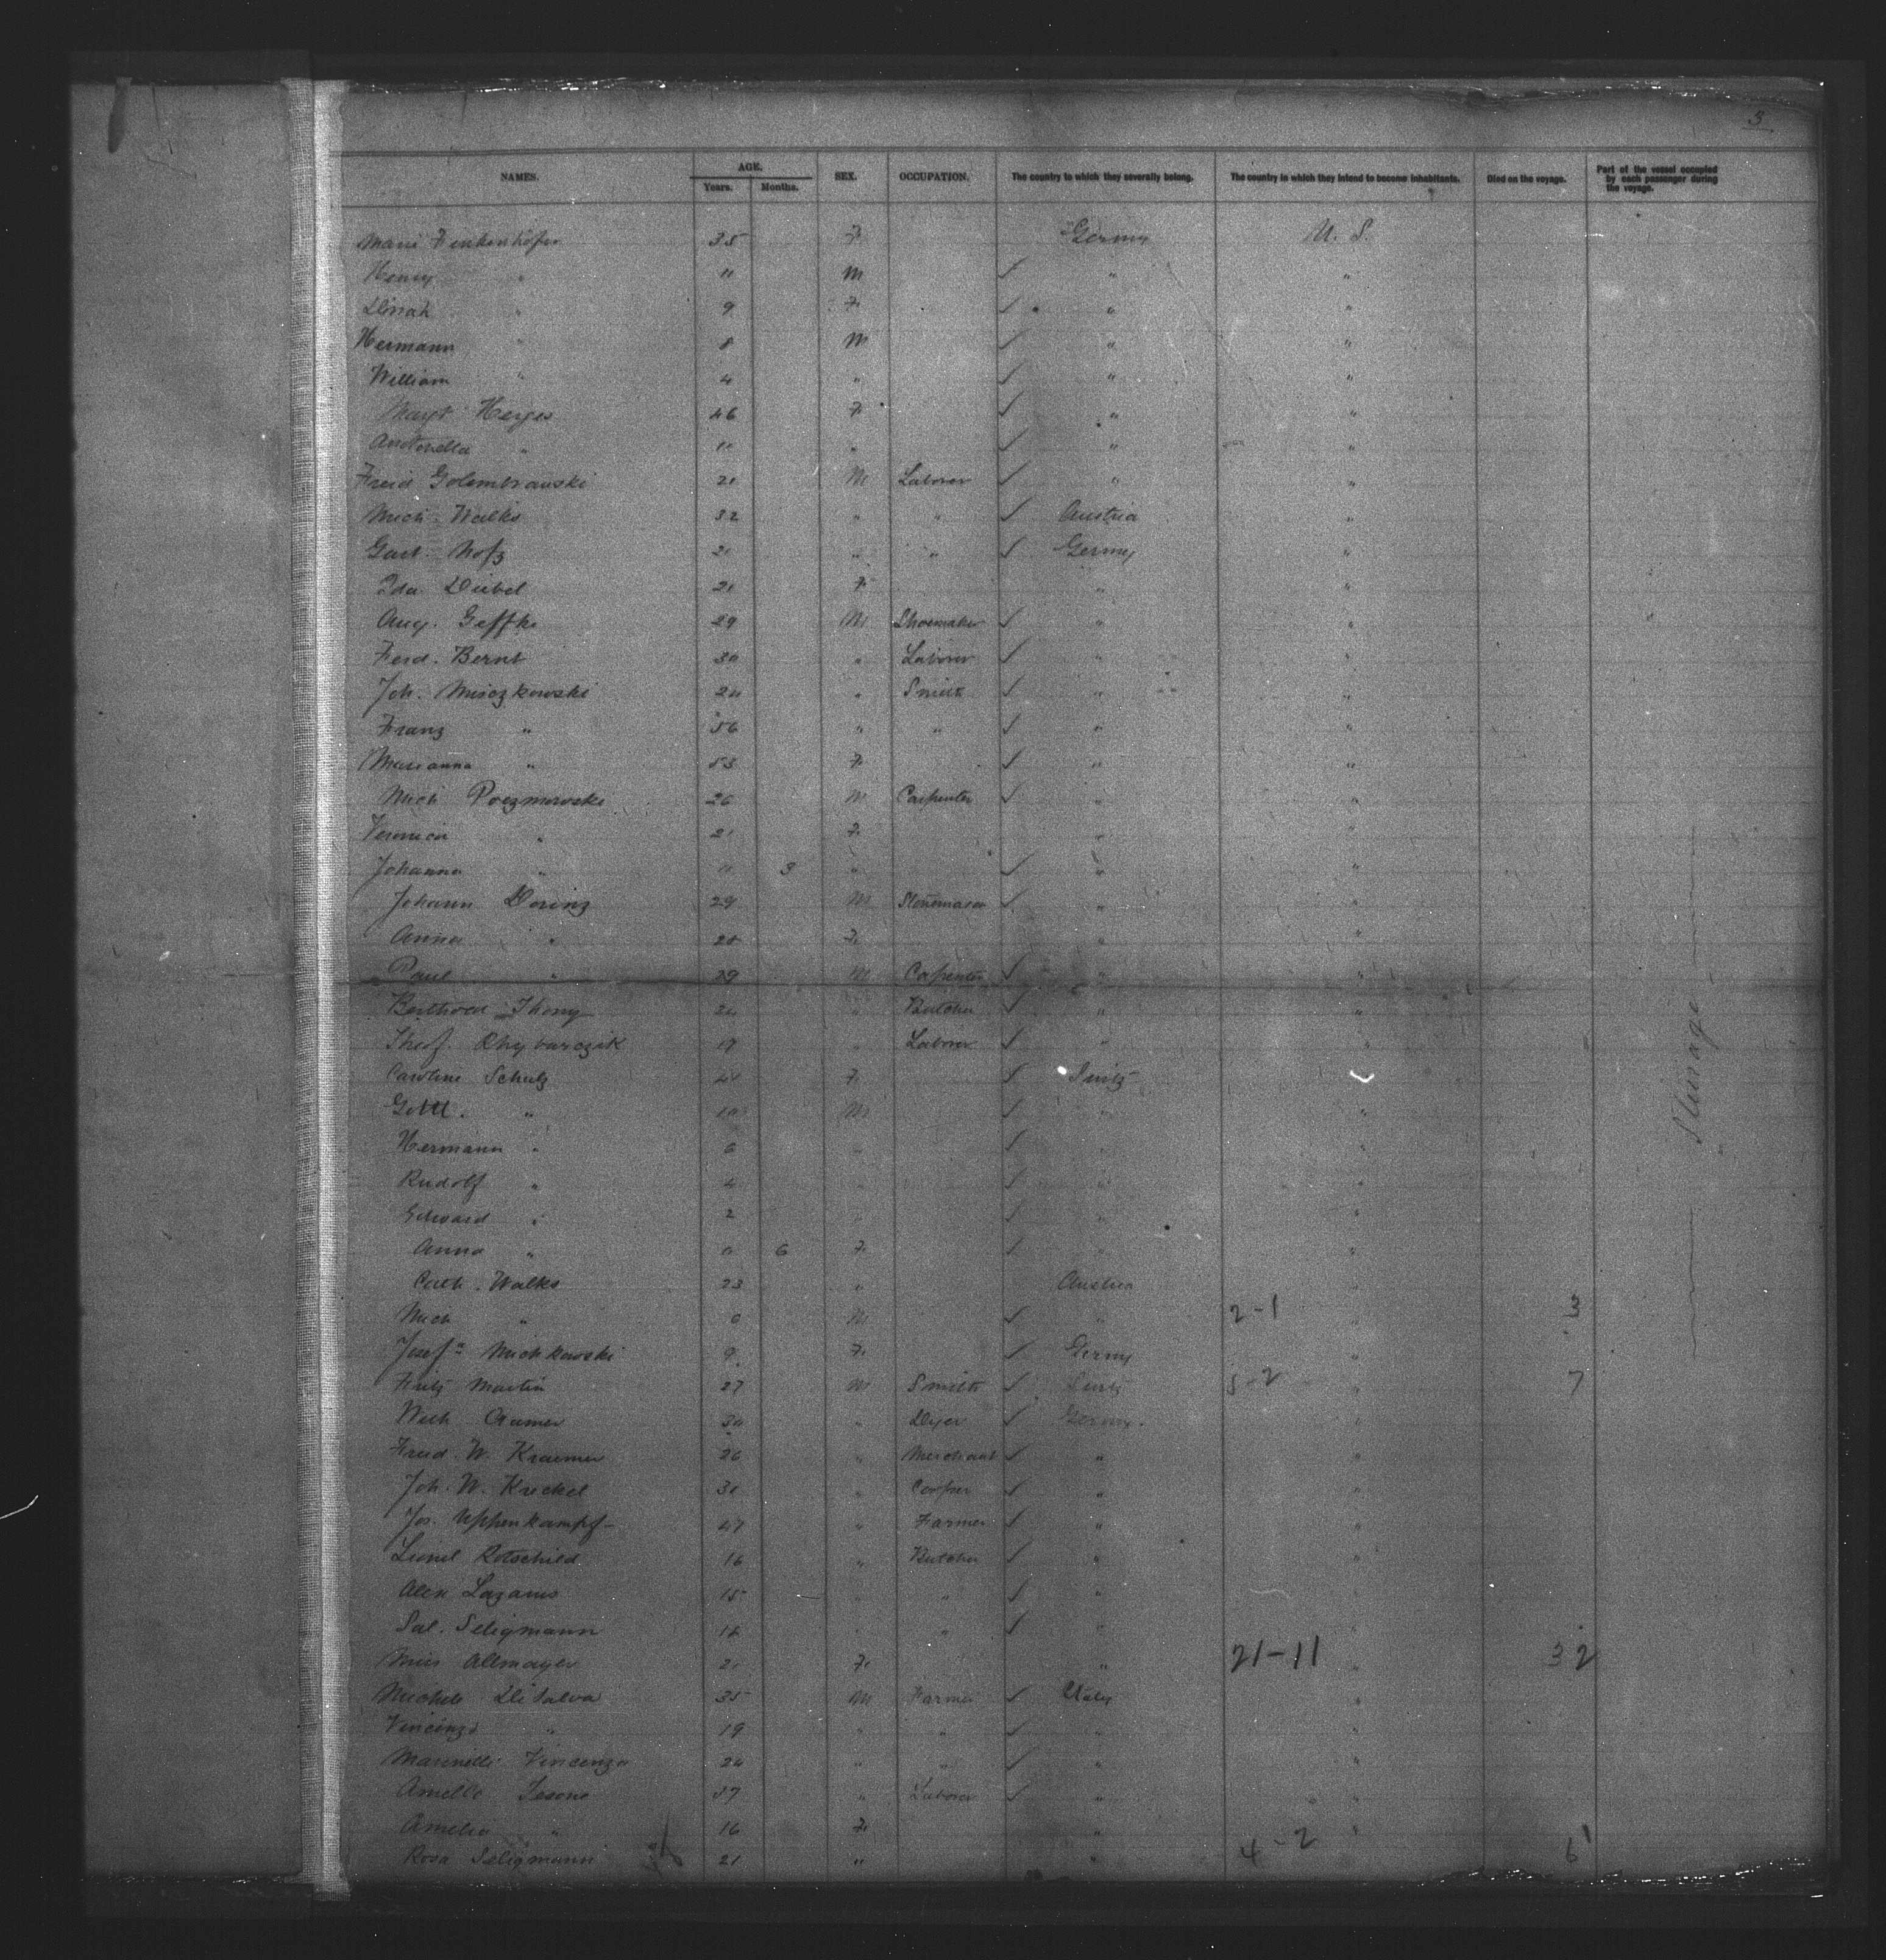 3
NAMES. AGE. Years. Months. SEX. OCCUPATION. The country to which they severally belong. The country in which they intend to become inhabitants. Died on the voyage. Part of the vessel occupied by each passenger during the voyage.
Marie 35 F Germy U. S.
Henry " 11 M " "
Dinah " 9 F " "
Hermann " 8 M " "
William " 4 " " "
Margt Herges 46 F " "
Antonella " 11 " " "
Fried Golembrauski 21 M Laborer " "
Mich. Walks 32 " " Austria "
Gust. 21 " " Germy "
Ida Deibel 21 F " "
Aug. Geffke 29 M Shoemaker " "
Ferd. Bernt 30 " Laborer " "
Joh. 24 " Smith " "
Franz " 56 " " " "
Marianna " 53 F " "
Mich 26 M Carpenter " "
Veronica " 21 F " "
Johanna " 3 " " "
Johann Dering 29 M Stonemason " "
Anna " F " "
Paul " 29 M Carpenter " "
Thomy " Butcher " "
17 " Laborer " "
Caroline Schulz F "
Gottl. " 10 M " "
Hermann " 6 " " "
Rudolf " 4 " " "
Edward " 2 " " "
Anna " 0 6 F " "
Cath. Walks 23 " Austria "
Mich " 0 M " 2-1 " 3
Josefa Michkowski 9 F Germy "
Fritz Martin 27 M Smith 5-2 " 7
Cramer 30 " Dyer Germy. "
Fried. W. Kraemer 26 " Merchant " "
Joh. W. Kreckel 31 " " "
Jos. Uppenkampf 47 " Farmer " "
Lionel Rotschild 16 " Butcher " "
Alex Lazarus 15 " " " "
Sal. Seligmann " " " "
Allmayer 21 F " 21-11 " 32
Michele Disalva 35 M Farmer Italy "
Vincenzo " 19 " " " "
Marinelli Vincenzo 24 " " " "
Aniello Iesone 37 " Laborer " "
Amelia " 16 F " "
Rosa Seligmann 21 " " 4-2 6
Steerage